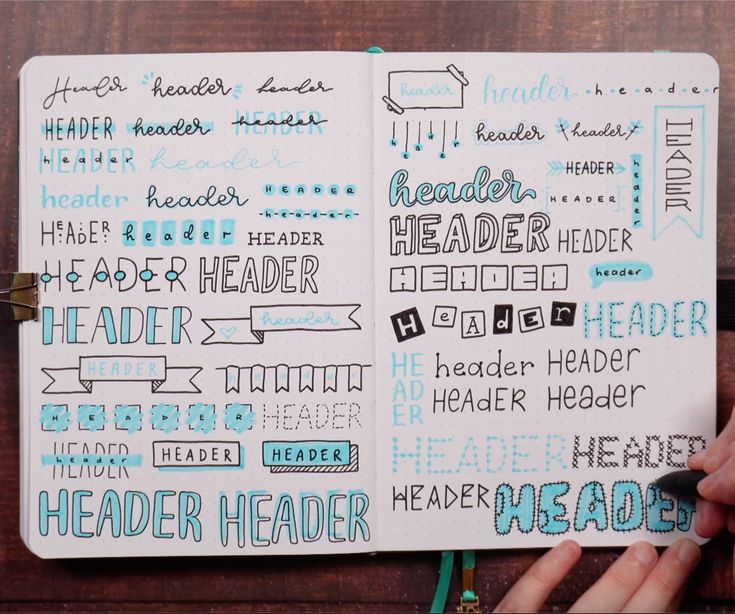 Header header header
HEADER header HEADER header
HEADER header header
header header HEADER
header
HEADER header HEADER
HEADER HEADER
HEADER header
HEADER header
HEADER HEADER
HEADER header HEADER HEADER
HEADER HEADER
header header header
header header header HEADER
HEADER header
header HEADER
HEADER HEADER
HEADER header
HeAder HEADER
HE header HEADER
AD
ER HEAdER Header
HEADER HEADER
HEADER HEADER